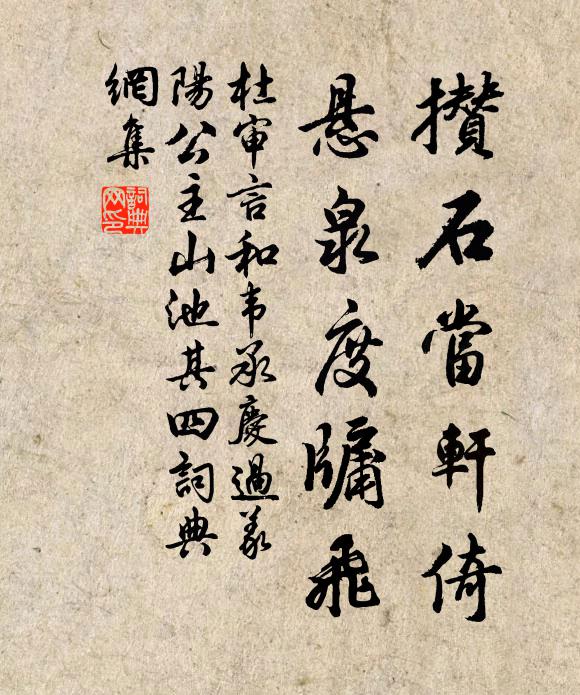 攢石當軒倚
悬泉度牖飛
杜审言和韦承慶過义
陽公主山池其四詞典
網集
詞典
网印